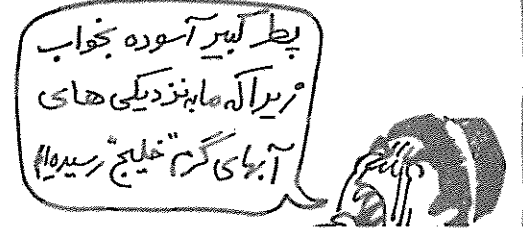 پطر کبیر آسوده بخواب
زیرا که ما به نزدیکی های
آبهای گرم "خلیج" رسیده ایم!